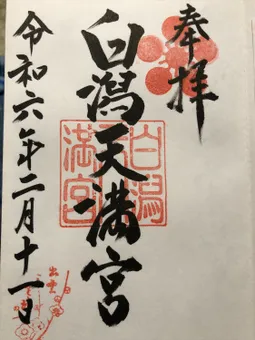 奉拝
白潟天満宮
令和六年二月十一日
白潟
天満宮
出雲